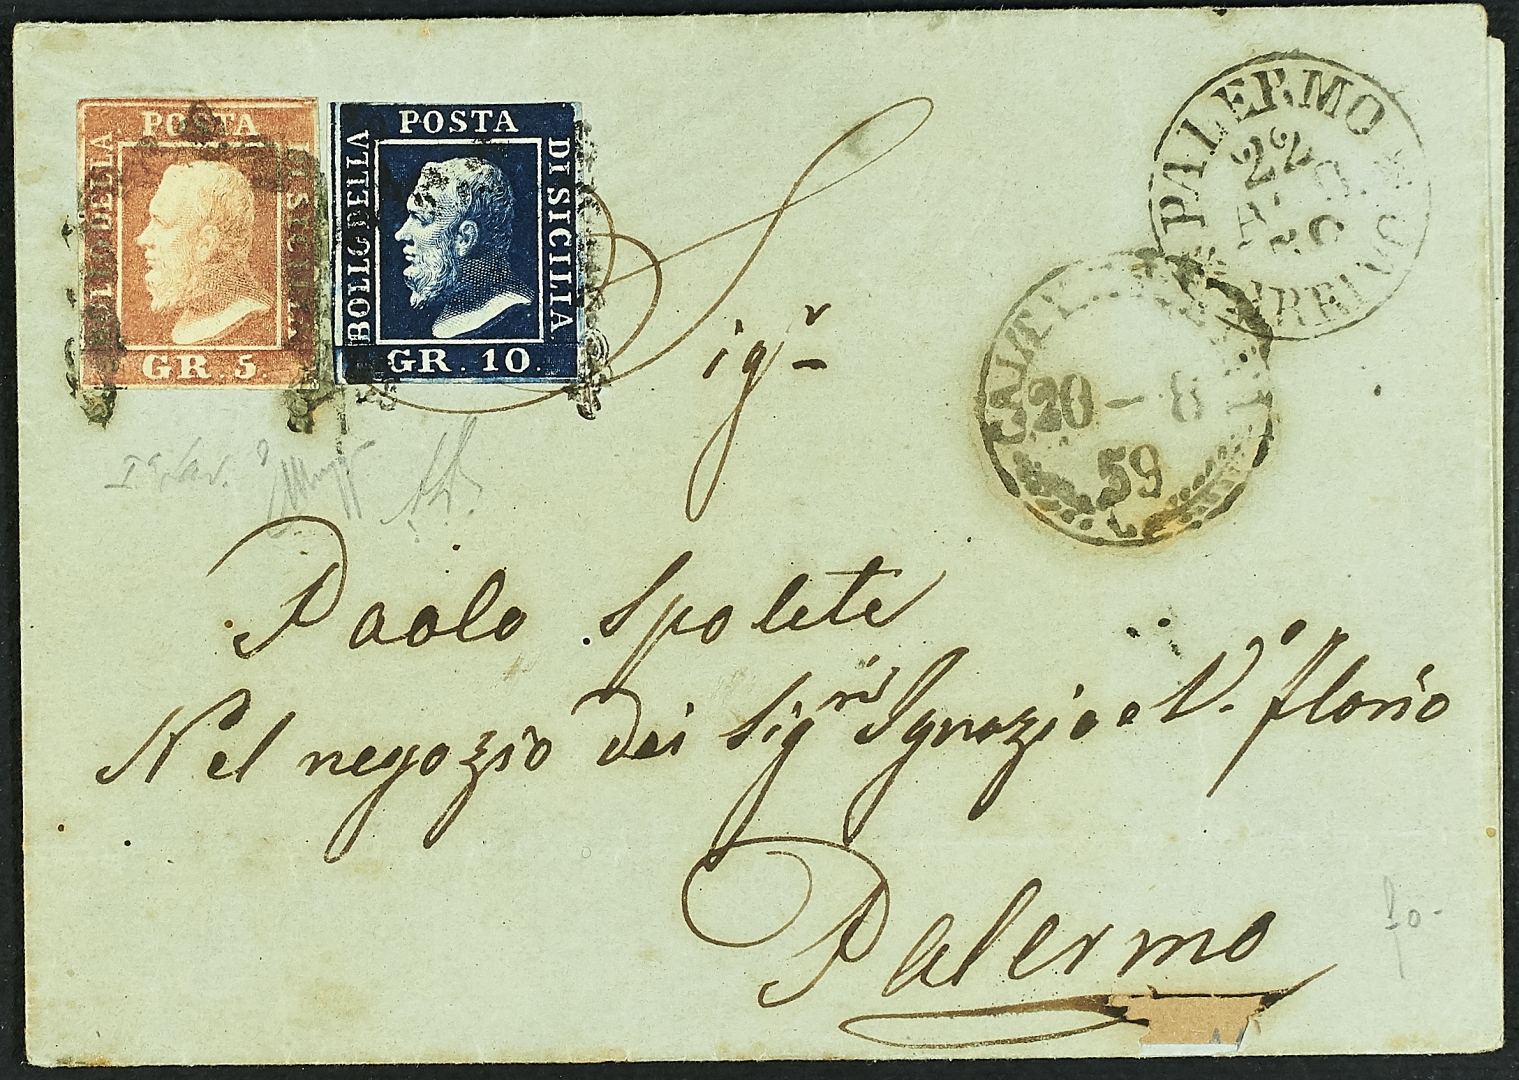 POSTA
BOLLO DELLA
DI SICILIA
GR. 5.
POSTA
BOLLO DELLA
DI SICILIA
GR. 10.
PALERMO
22
ARRIVO
20-8
59
Sigr
Paolo Spolete
Nel negozio dei Sigri Ignazio e V. Florio
Palermo